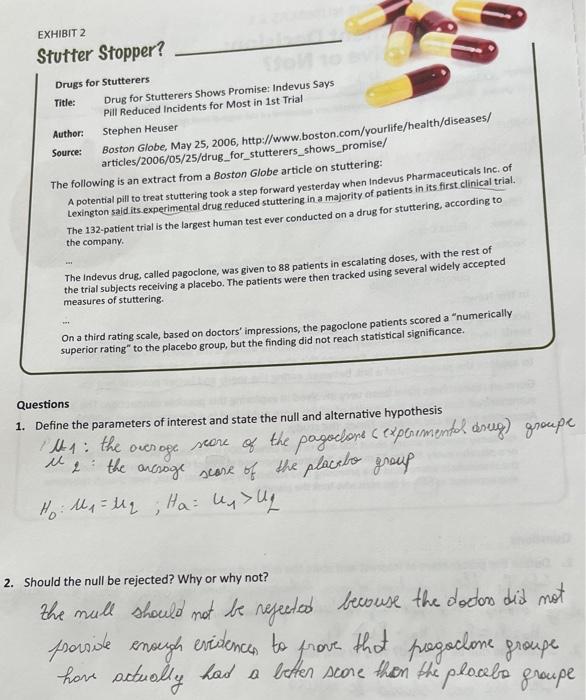 EXHIBIT 2
Stutter Stopper?
Drugs for Stutterers
Title: Drug for Stutterers Shows Promise: Indevus Says
Pill Reduced Incidents for Most in 1st Trial
Author: Stephen Heuser
Source: Boston Globe, May 25, 2006, http://www.boston.com/yourlife/health/diseases/
articles/2006/05/25/drug_for_stutterers_shows_promise/
The following is an extract from a Boston Globe article on stuttering:
A potential pill to treat stuttering took a step forward yesterday when Indevus Pharmaceuticals Inc. of
Lexington said its experimental drug reduced stuttering in a majority of patients in its first clinical trial.
The 132-patient trial is the largest human test ever conducted on a drug for stuttering, according to
the company.
...
The Indevus drug, called pagoclone, was given to 88 patients in escalating doses, with the rest of
the trial subjects receiving a placebo. The patients were then tracked using several widely accepted
measures of stuttering.
...
On a third rating scale, based on doctors' impressions, the pagoclone patients scored a "numerically
superior rating" to the placebo group, but the finding did not reach statistical significance.
Questions
1. Define the parameters of interest and state the null and alternative hypothesis
μ1 : the average score of the pagoclone (experimental drug) groupe
μ2 : the average score of the placebo group
H0: μ1 = μ2 ; Ha: μ1 > μ2
2. Should the null be rejected? Why or why not?
the null should not be rejected because the doctors did not
provide enough evidences to prove that pagoclone groupe
have actually had a better score than the placebo groupe